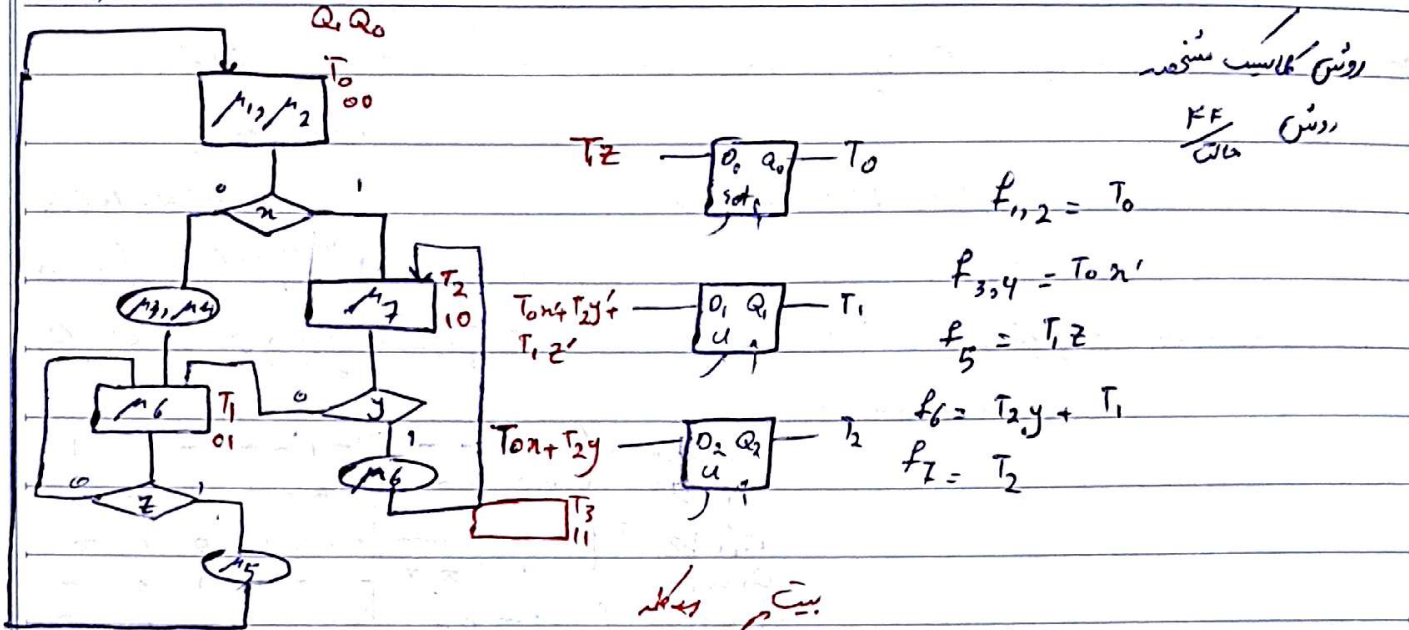 Q₁ Q₀
T₀
00
μ₁, μ₂
0
1
x
μ₃, μ₄
μ₇
T₂
10
μ6
T₁
01
0
y
1
μ6
0
z
1
μ5
T₃
11
T₁z
D₀ Q₀
set
T₀
T₀x'+T₂y'+
T₁z'
D₁ Q₁
T₁
T₀x+T₂y
D₂ Q₂
T₂
روش کلاسیک
روش FF
حالت
f₁,₂ = T₀
f₃,₄ = T₀x'
f₅ = T₁z
f₆ = T₂y + T₁
f₇ = T₂
بیت